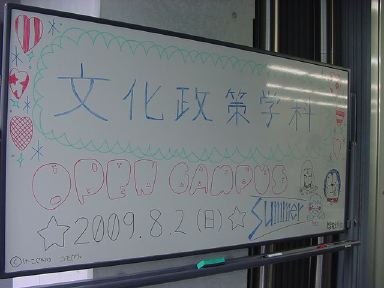 文化政策学科
OPEN CAMPUS
☆2009.8.2(日)☆
Summer